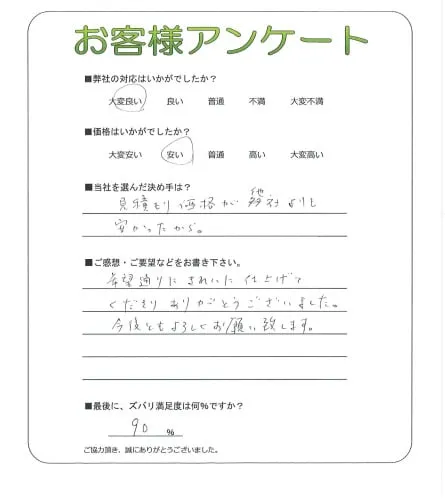 お客様アンケート
■弊社の対応はいかがでしたか？
大変良い 良い 普通 不満 大変不満
■価格はいかがでしたか？
大変安い 安い 普通 高い 大変高い
■当社を選んだ決め手は？
見積もり価格が他社よりも
安かったから。
■ご感想・ご要望などをお書き下さい。
希望通りにきれいに仕上げて
くださりありがとうございました。
今後ともよろしくお願い致します。
■最後に、ズバリ満足度は何%ですか？
90 %
ご協力頂き、誠にありがとうございました。